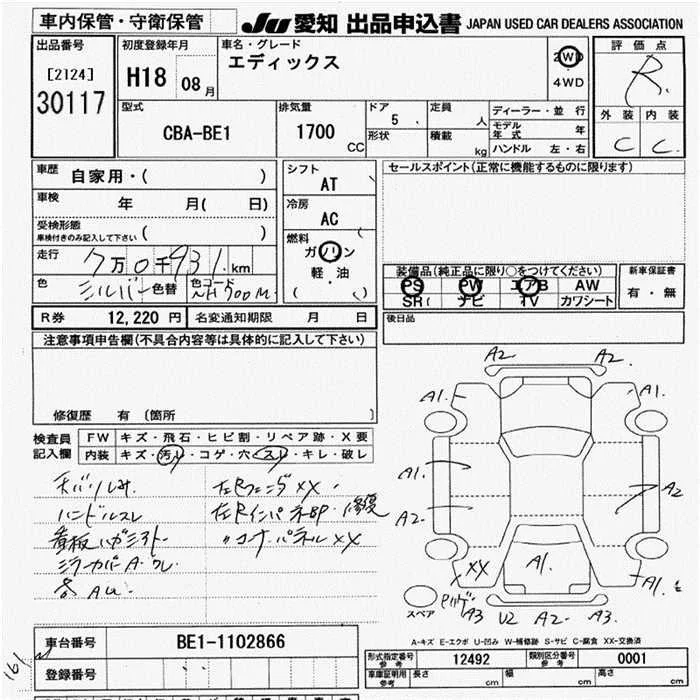 車内保管・守衛保管
JU 愛知 出品申込書 JAPAN USED CAR DEALERS ASSOCIATION
出品番号
[2124]
30117
初度登録年月
H18 08月
車名・グレード
エディックス
2WD
4WD
評価点
R.
外装 内装
C C.
型式
CBA-BE1
排気量
1700 CC
ドア 5
形状
定員 人
積載 kg
ディーラー・並行
モデル年式 年
ハンドル 左・右
車歴 自家用・( )
車検 年 月( 日)
受検形態
車検付きのみ記入して下さい ( )
走行 7万0千931 km
色 シルバー 色替 色コード NH700M
シフト AT
冷房 AC
燃料
ガソリン
軽・油
( )
セールスポイント(正常に機能するものに限ります)
装備品(純正品に限り○をつけてください)
PS PW エアB AW
SR( ナビ TV カワシート
新車保証書
有・無
後日品
R券 12,220円 名変通知期限 月 日
注意事項申告欄(不具合内容等は具体的に記入して下さい)
修復歴 有(箇所 )
検査員記入欄
FW キズ・飛石・ヒビ割・リペア跡・X要
内装 キズ・汚レ・コゲ・穴・スレ・キレ・破レ
ハンドルスレ
左Rフェンダ XX
左Rインパネ部 修復
〃コーナーパネル XX
ミラーカバー A・ワレ
A2 A2.
A1. A1.
A1. A2
A2.
XX A1. A1.
スペア
A3 U2 A2- A3.
A-キズ E-エクボ U-凹み W-補修跡 S-サビ C-腐食 XX-交換済
車台番号 BE1-1102866
登録番号
161
形式指定番号 参考 12492 類別区分番号 参考 0001
車庫証明用 参考 長さ cm 幅 cm 高さ cm